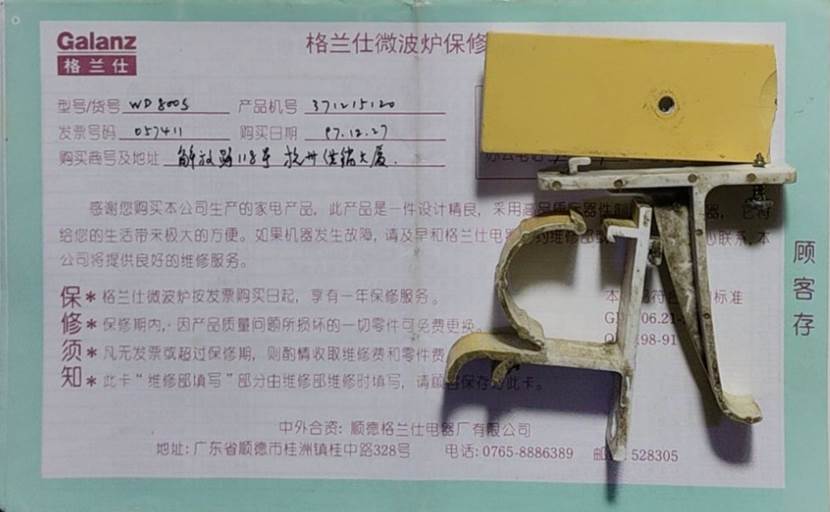 Galanz
格兰仕
格兰仕微波炉保修
型号/货号 WD800S 产品机号 371215120
发票号码 057411 购买日期 97.12.27
购买商号及地址 解放路118号 杭州供销大厦.
感谢您购买本公司生产的家电产品，此产品是一件设计精良，采用高品质
给您的生活带来极大的方便。如果机器发生故障，请及早和格兰仕电器 联系，本
公司将提供良好的维修服务。
保修须知
* 格兰仕微波炉按发票购买日起，享有一年保修服务。
* 保修期内，因产品质量问题所损坏的一切零件可免费更换。
* 凡无发票或超过保修期，则酌情收取维修费和零件费
* 此卡“维修部填写”部分由维修部维修时填写，请 保存 此卡。
本 符 标准
06.21-
98-91
中外合资：顺德格兰仕电器厂有限公司
地址：广东省顺德市桂洲镇桂中路328号 电话：0765-8886389 邮 528305
顾客存